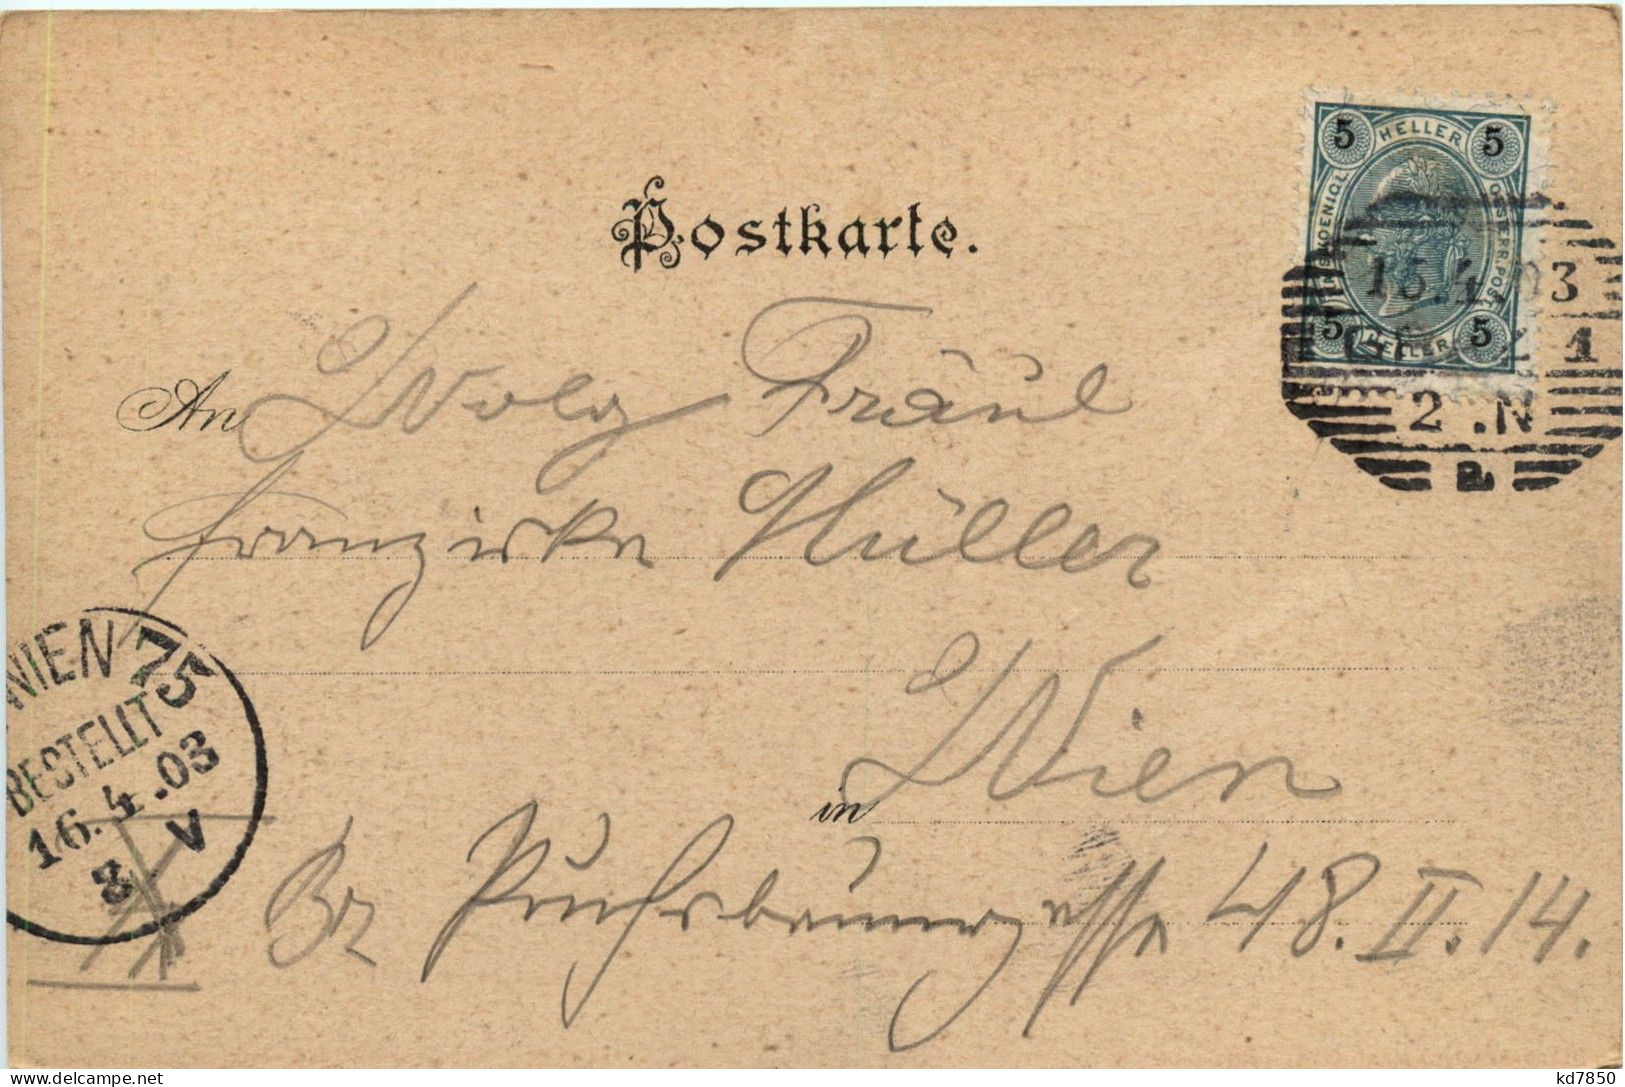 Postkarte.
5 HELLER 5
KAISERL.KOENIGL. OESTERR.POST
5 HELLER 5
15.4.03
1
2 .N
An Wolg Fräul
Franziska Müller
WIEN 75
BESTELLT
16.4.03
8 V
in Wien
Bz Puchsbaumgasse 48. II. 14.
kd7850